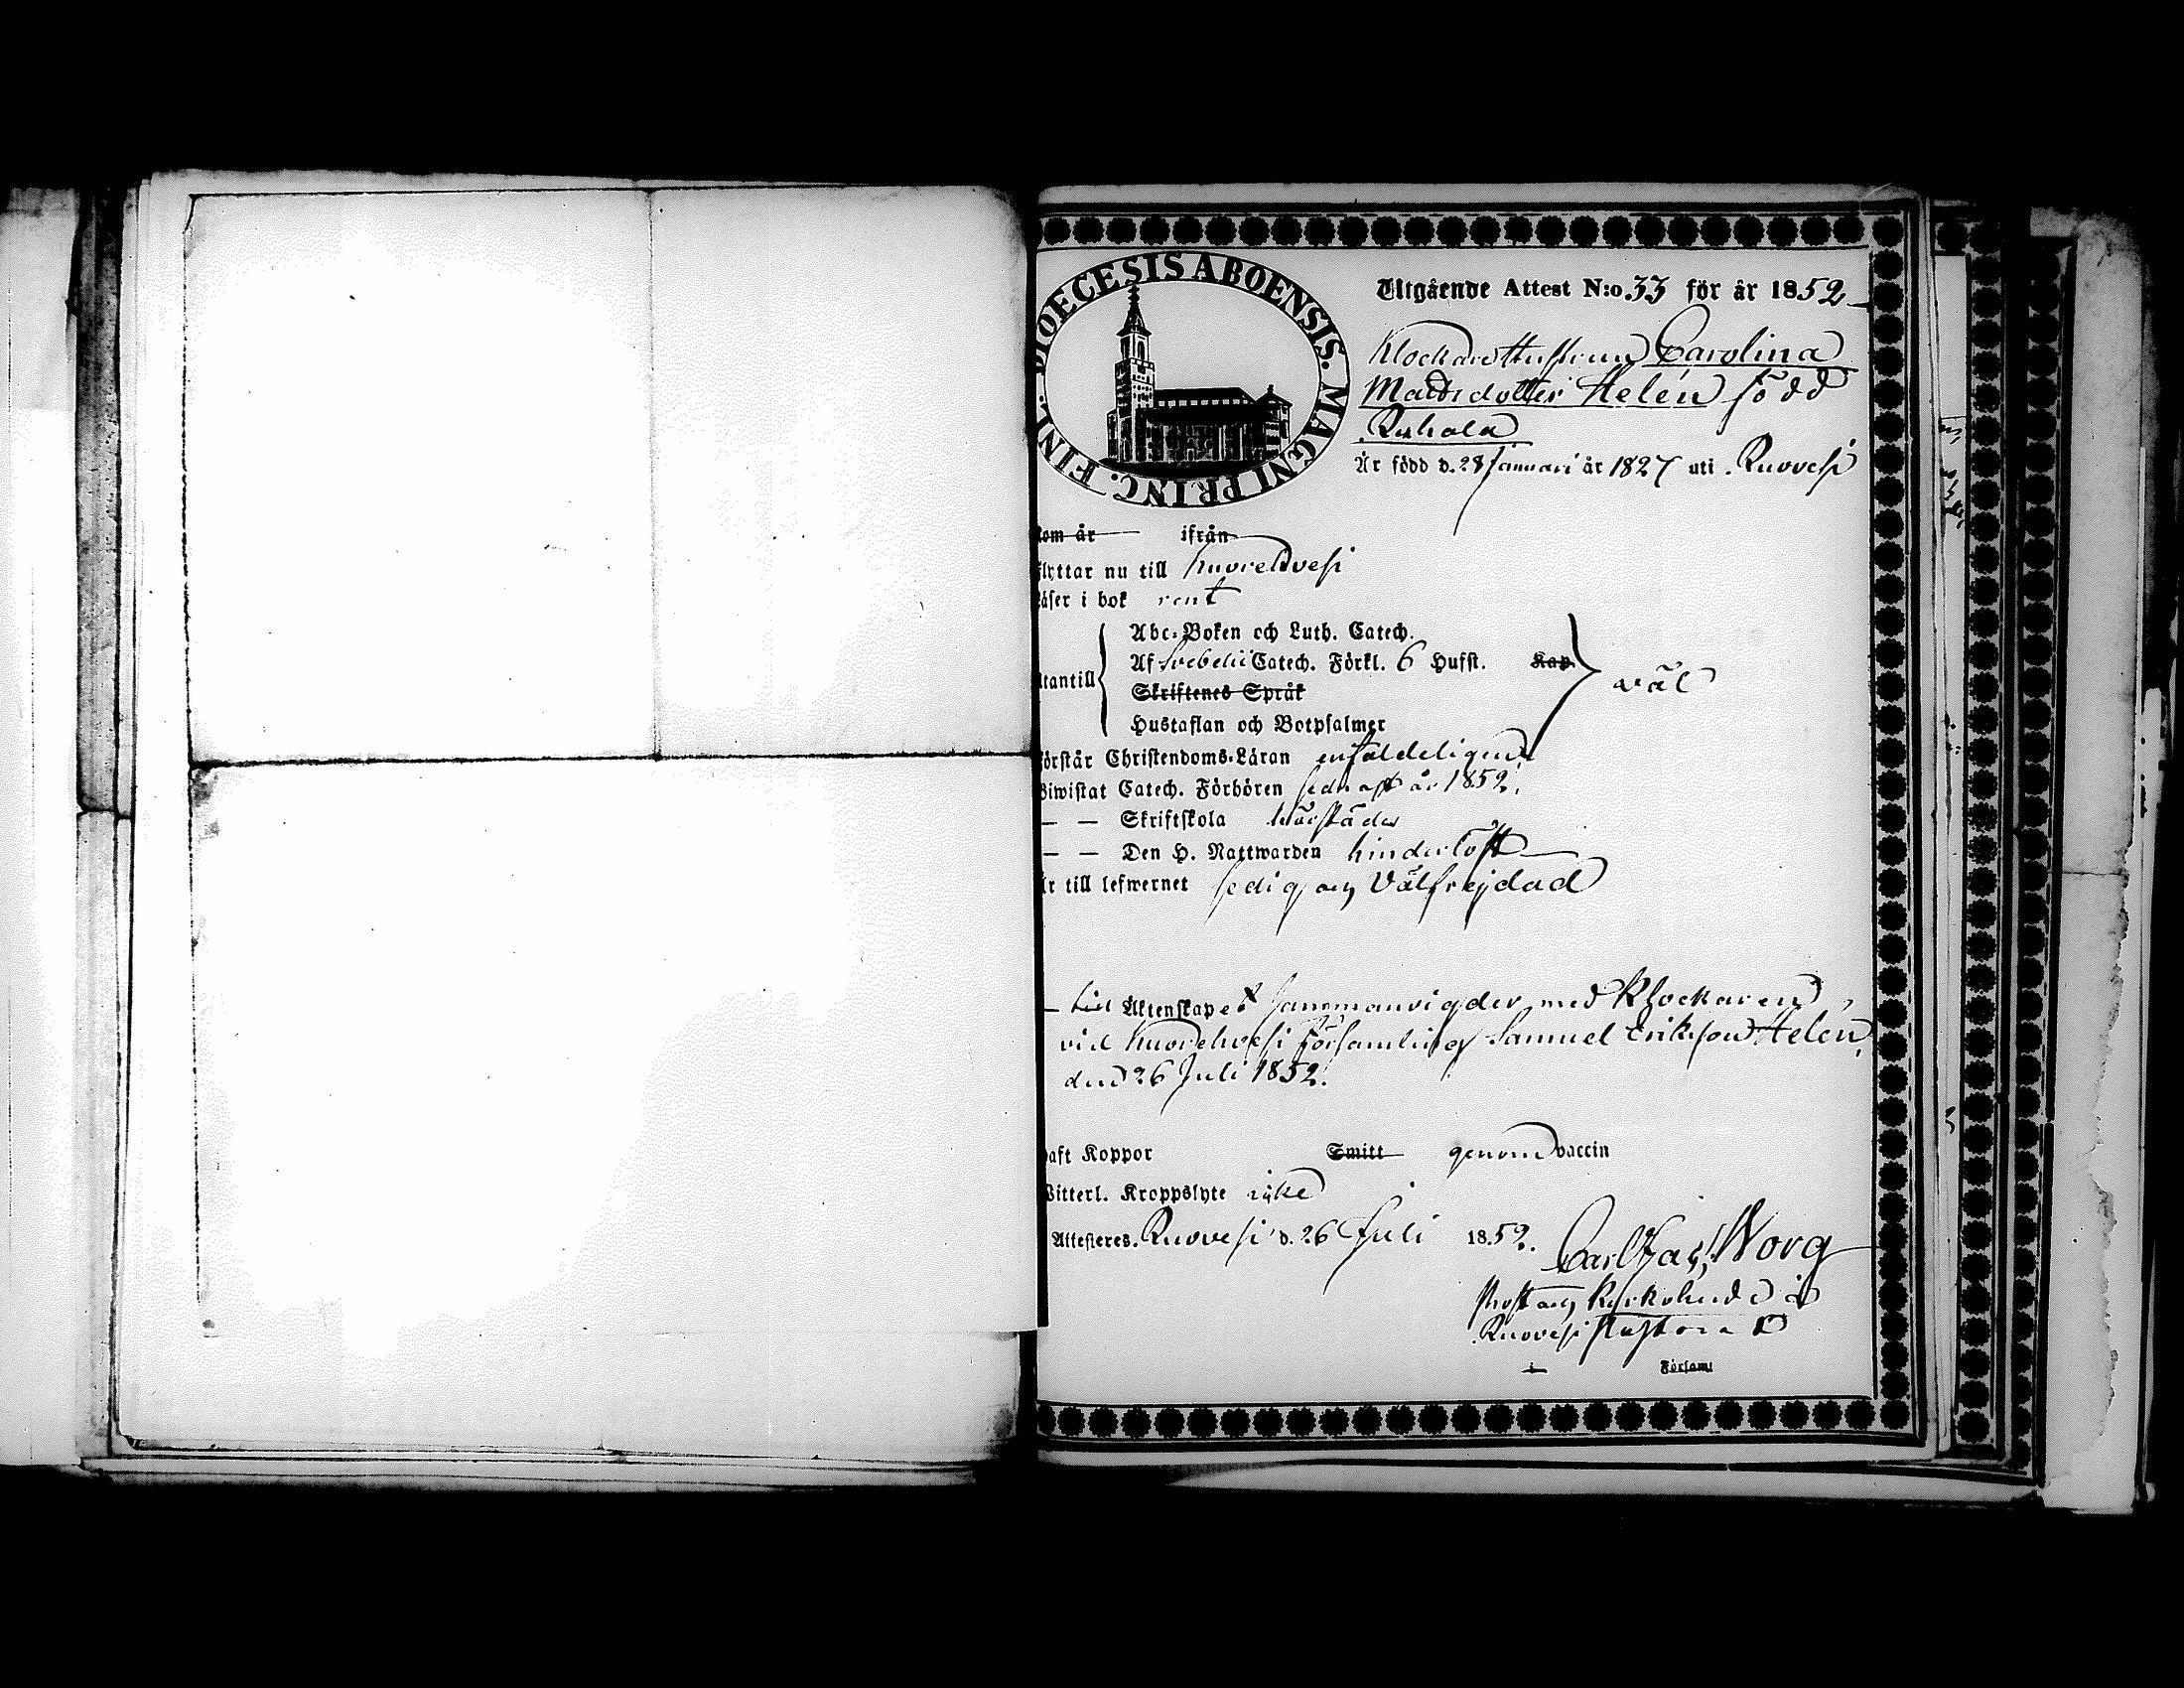 DIOECESIS ABOENSIS. MAGNI PRINC. FINL.
Utgående Attest N:o 33 för år 1852
Klockare Hustrun Carolina
Matsdotter Helén född
Ruhala
Är född d. 28 Januari år 1827 uti Ruovesi
Kom år ifrån
flyttar nu till Kuorehvesi
Läser i bok rent
Utantill
Abc-Boken och Luth. Catech.
Af Svebelii Catech. Förkl. 6 Hufst. Kap.
väl
Skriftenes Språk
Hustaflan och Botpsalmer
Förstår Christendoms-Läran enfaldeligen
Biwistat Catech. Förhören sednast år 1852.
— — Skriftskola härstädes
— — Den H. Nattwarden hinderlöst
Är till lefwernet sedig och Välfrejdad
— till Äktenskapet sammanvigder med Klockaren
vid Kuorehvesi Församling Samuel Eriksson Helén
den 26 Juli 1852.
Haft Koppor Smitt genom vaccin
Witterl. Kroppslyte icke
Attesteres. Ruovesi d. 26 Juli 1852.
Carl Zach. Norg
Prost och Kyrkoherde i
Ruovesi Pastorat
i Församl